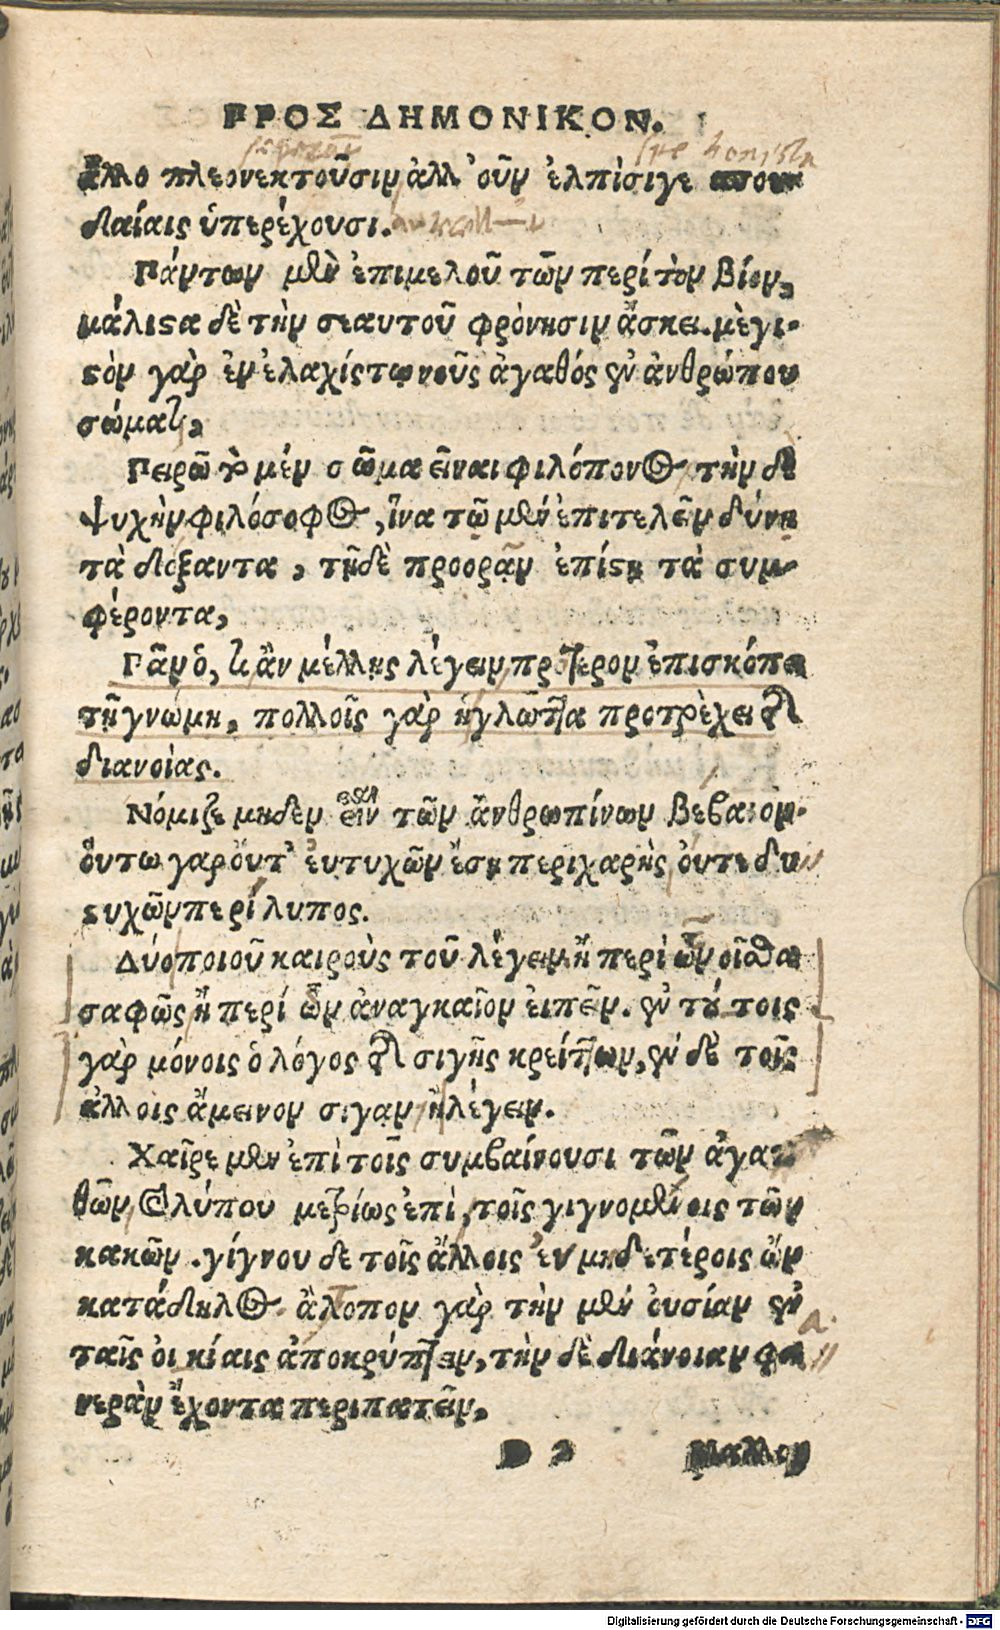 ΠΡΟΣ ΔΗΜΟΝΙΚΟΝ.
ἄλλο πλεονεκτοῦσιν ἀλλ' οὖν ἐλπίσιγε σπου
δαίαις ὑπερέχουσι.
Πάντων μὲν ἐπιμελοῦ τῶν περί τὸν βίον,
μάλιστα δὲ τὴν σεαυτοῦ φρόνησιν ἄσκει. μὲγι-
στὸν γὰρ ἐν ἐλαχίστῳ νοῦς ἀγαθός ἐν ἀνθρώπου
σώματι,
Πειρῶ τὸ μέν σῶμα εἶναι φιλόπονος, τὴν δὲ
ψυχὴν φιλόσοφος, ἵνα τῷ μὲν ἐπιτελεῖν δύνῃ
τὰ δόξαντα, τῇ δὲ προορᾷν ἐπίστῃ τὰ συμ-
φέροντα,
Πᾶν ὁ, τι ἂν μέλλῃς λέγειν πρότερον ἐπισκόπει
τῇ γνώμῃ, πολλοῖς γὰρ ἡ γλῶττα προτρέχει τῆς
διανοίας.
Νόμιζε μηδεν εἶναι τῶν ἀνθρωπίνων βεβαιον.
ὅυτω γαρ ὄυτ' ἐυτυχῶν ἔσῃ περιχαρὴς ὄυτε δυ
στυχῶν περίλυπος.
Δύο ποιοῦ καιροὺς τοῦ λέγειν ἢ περὶ ὧν οἶσθα
σαφῶς ἢ περί ὧν ἀναγκαῖον ἐιπεῖν. ἐν τούτοις
γὰρ μόνοις ὁ λόγος τῆς σιγῆς κρείττων, ἐν δὲ τοῖς
ἄλλοις ἄμεινον σιγᾳν ἢ λέγειν.
Χαῖρε μὲν ἐπὶ τοῖς συμβαίνουσι τῶν ἀγα-
θῶν, καὶ λύπου μετρίως ἐπὶ τοῖς γιγνομένοις τῶν
κακῶν. γίγνου δε τοῖς ἄλλοις ἐν μηδετέροις ὢν
κατάδηλος. ἄτοπον γὰρ τὴν μὲν ὀυσίαν ἐν
ταῖς ὀικίαις ἀποκρύπτειν, τὴν δὲ διάνοιαν φα
νερὰν ἔχοντα περιπατεῖν,
D 2 Μᾶλλον
Digitalisierung gefördert durch die Deutsche Forschungsgemeinschaft - DFG